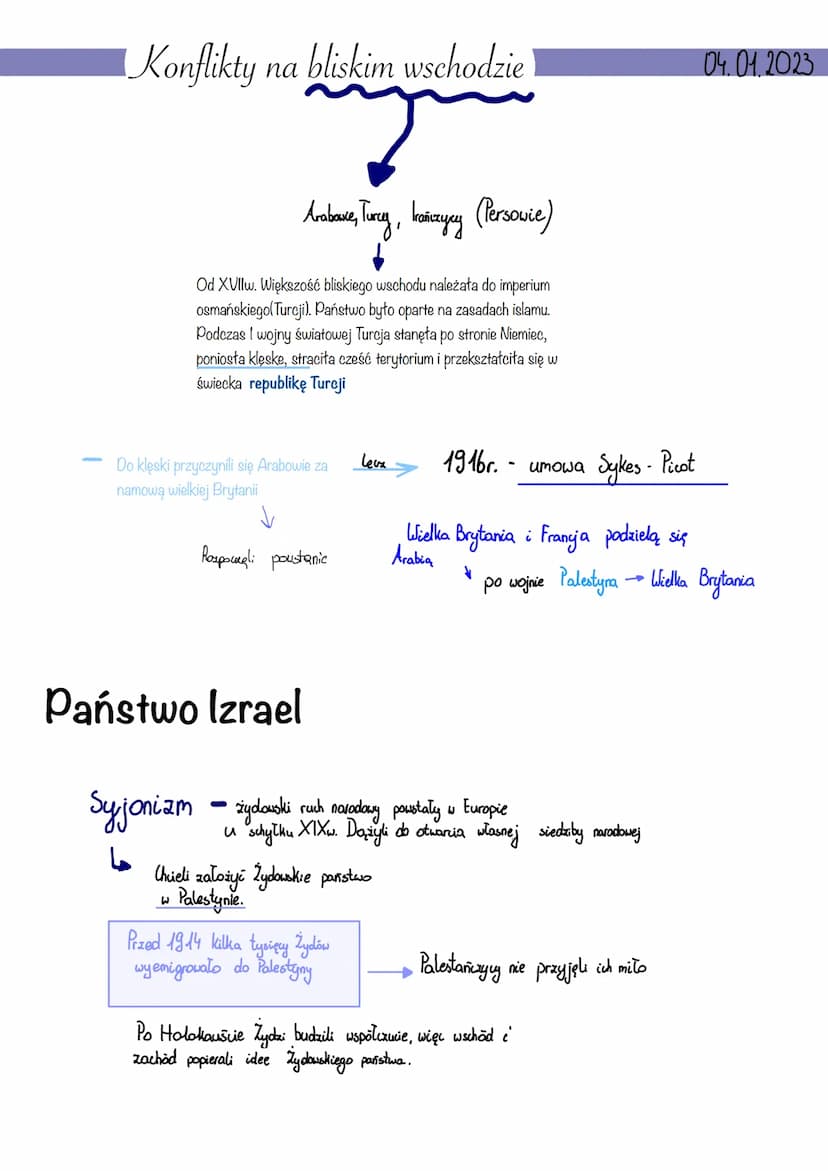 Konflikty na bliskim wschodzie
04.01.2023
Arabowie, Turcy, Irańczycy (Persowie)
Od XVIIw. Większość bliskiego wschodu należała do imperium
osmańskiego(Turcji). Państwo było oparte na zasadach islamu.
Podczas I wojny światowej Turcja stanęła po stronie Niemiec,
poniosła klęske, straciła cześć terytorium i przekształciła się w
świecka republikę Turcji
Do klęski przyczynili się Arabowie za
namową wielkiej Brytanii
lecz
1916r. - umowa Sykes - Picot
Rozpoczęli powstanie
Wielka Brytania i Francja podzielą się
Arabią
po wojnie Palestyna → Wielka Brytania
Państwo Izrael
Syjonizm – żydowski ruch narodowy powstały w Europie
u schyłku XIXw. Dążyli do otwarcia własnej siedziby narodowej
Chcieli założyć Żydowskie państwo
w Palestynie.
Przed 1914 kilka tysięcy Żydów
wyemigrowało do Palestyny
Palestańczycy nie przyjęli ich miło
Po Holokauście Żydzi budzili współczucie, więc wschód i
zachód popierali idee Żydowskiego państwa.